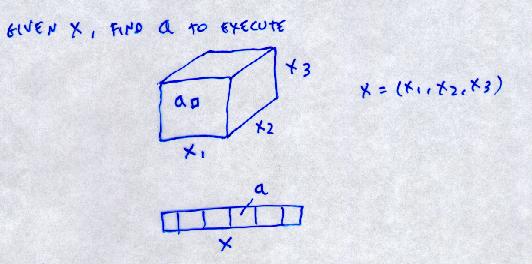 GIVEN X, FIND a TO EXECUTE
x3
a
x = (x1, x2, x3)
x2
x1
a
x